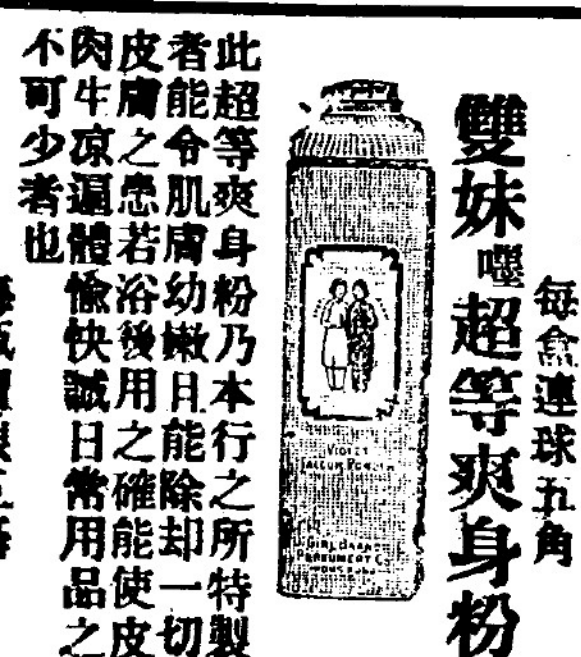 每盒連球五角
雙妹嚜超等爽身粉
VIOLET
TALCUM POWDER
GIRL BRAND
PERFUMERY CO
HONG KONG
此超等爽身粉乃本行之所特製
者能令肌膚幼嫩且能除却一切
皮膚之患若浴後用之確能使皮
肉生凉逼體愉快誠日常用品之
不可少者也